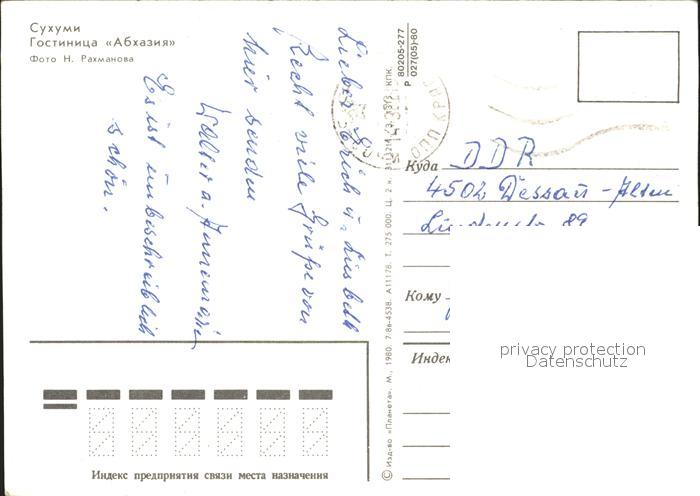 Сухуми
Гостиница «Абхазия»
Фото Н. Рахманова
Lieber Erich u. Lisbeth
Recht viele Grüße von
hier senden
Walter u. Annemarie
Es ist unbeschreiblich
schön.
80205-277
Р 027(05)-80
© Изд-во «Планета». М., 1980. 7-86-4538. А11178. Т. 275 000. Ц. 2 к.
КПК.
Куда DDR
4502 Dessau - Alten
89
Кому
Индекс
privacy protection
Datenschutz
Индекс предприятия связи места назначения